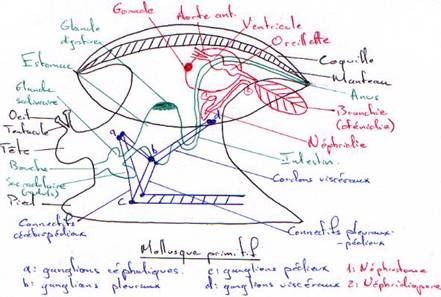 Gonade
Aorte ant.
Ventricule
Oreillette
Glande digestive
Estomac
Glande salivaire
Coquille
Manteau
Anus
Branchie (cténidie)
Oeil
Tentacule
Tête
Bouche
Sac radulaire (radula)
Pied
Néphridie
Intestin
Cordons viscéraux
Connectifs cérébropédieux
Connectifs pleuraux-pédieux
a
b
c
d
1
2
Mollusque primitif
a: ganglions céphaliques. c: ganglions pédieux 1: Néphrostome
b: ganglions pleuraux d: ganglions viscéraux 2: Néphridiopore